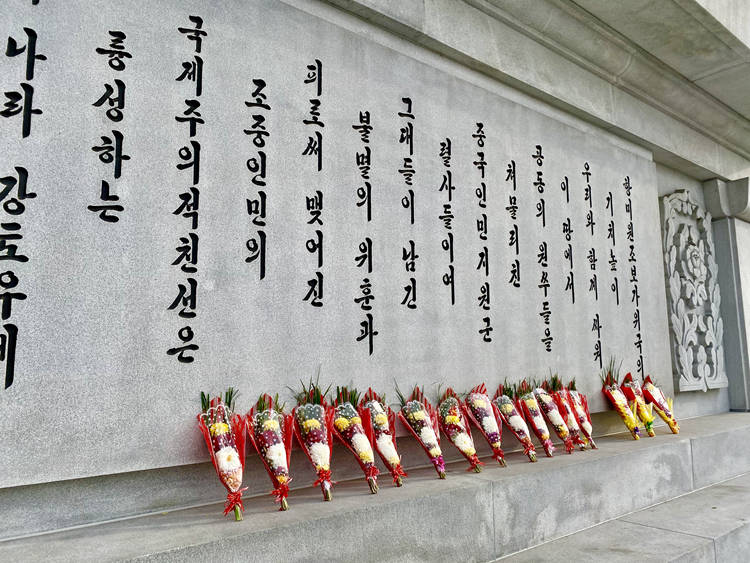 항미원조보가위국의
기치높이
우리와 함께 싸워
이 땅에서
공동의 원쑤들을
쳐물리친
중국인민지원군
렬사들이여
그대들이 남긴
불멸의 위훈과
피로써 맺어진
조중인민의
국제주의적친선은
륭성하는
나라 강토우에